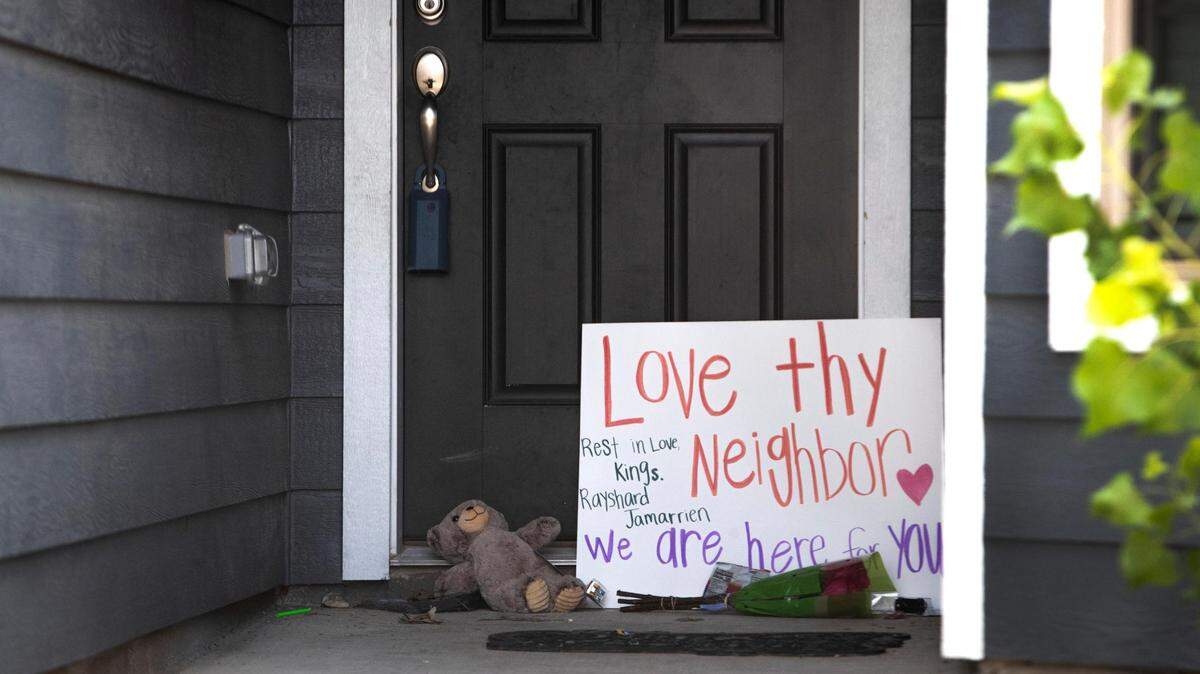 Love thy
Neighbor
Rest in Love,
Kings.
Rayshard
Jamarrien
We are here for YOU